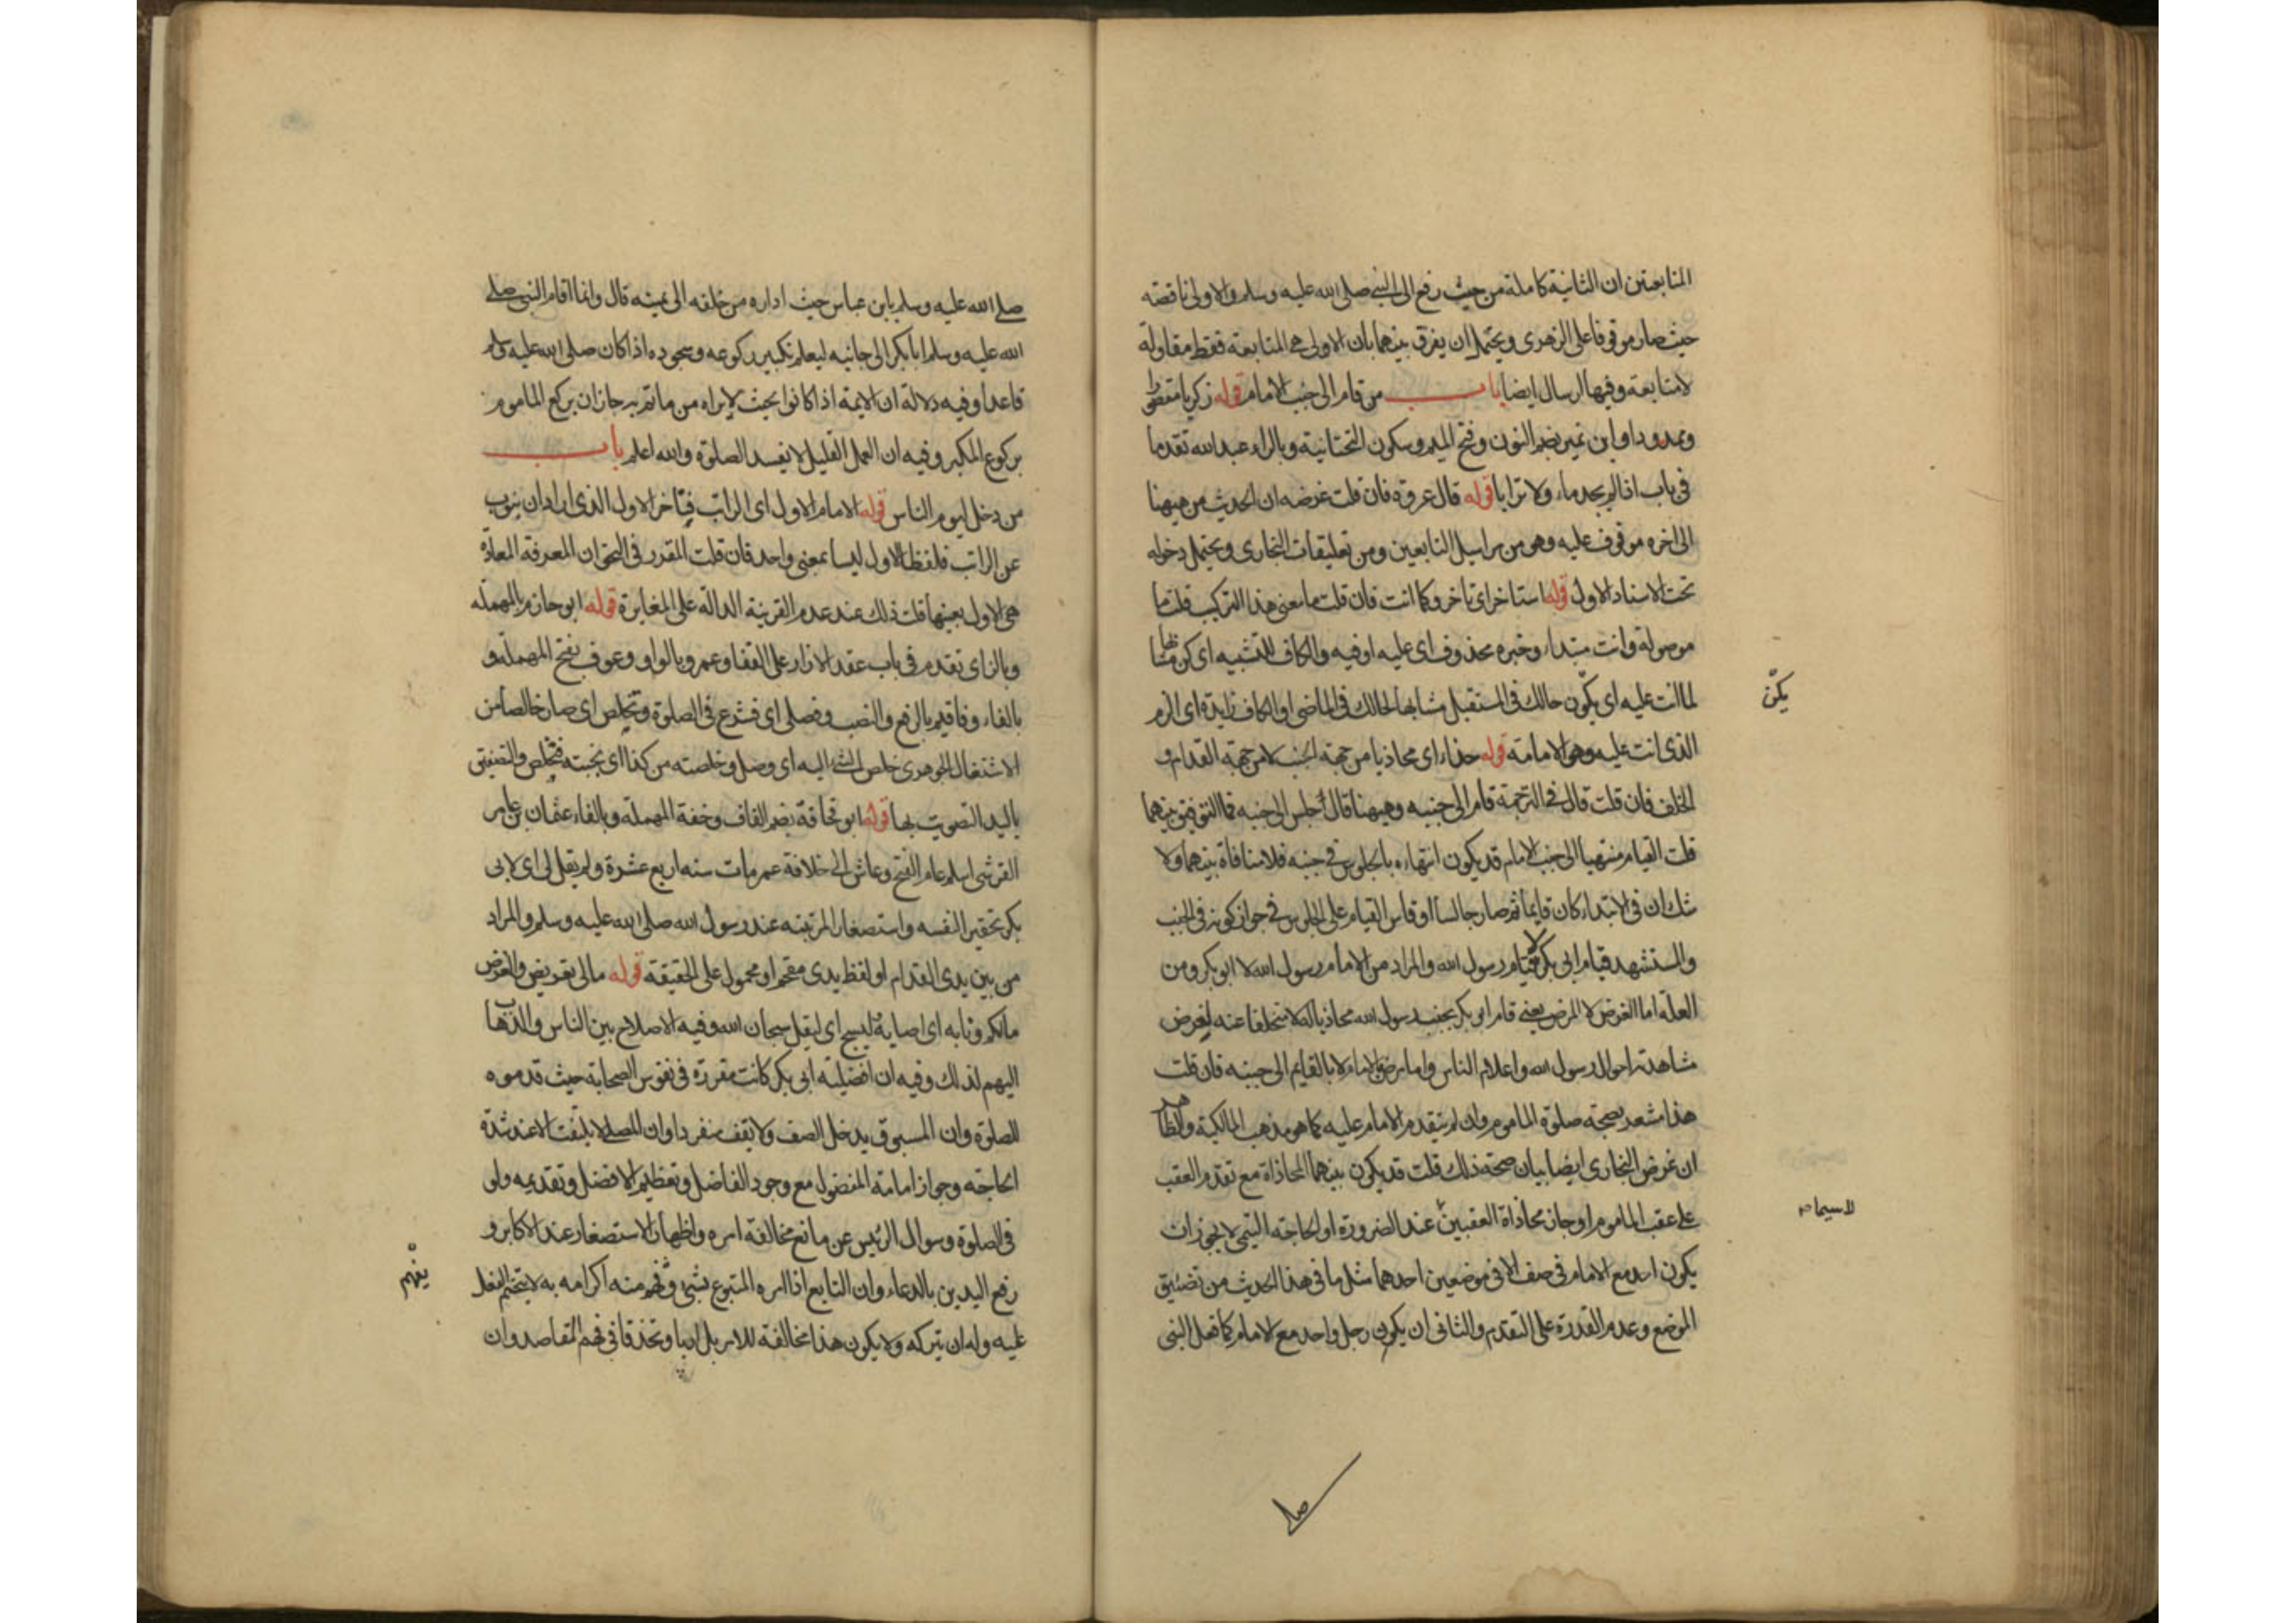 المتابعتين ان الثانية كاملة من حيث رفع الى النبي صلى الله عليه وسلم والاولى ناقصة
حيث صار موقوفا على الزهرى ويحتمل ان يفرق بينهما بان الاولى هي المتابعة فقط مقاولة
لا متابعة وفيها ارسال ايضا باب من قام الى جنب الامام قوله زكريا مقصورا
وممدودا وابن نمير بضم النون وفتح الميم وسكون التحتانية وبالراء عبد الله تقدما
في باب اذا لم يجد ماء ولا ترابا قوله قال عروة فان قلت غرضه ان الحديث من ههنا
الى اخره موقوف عليه وهو من مراسيل التابعين ومن تعليقات البخارى ويحتمل دخوله
تحت الاسناد الاول قوله استاخر اى تاخر وكما انت فان قلت ما معنى هذا التركيب قلت ما
موصولة وانت مبتداء وخبره محذوف اى عليه او فيه والكاف للتشبيه اى كن مشابها
لما انت عليه اى يكون حالك في المستقبل مشابها لحالك في الماضى او الكاف زايدة اى الزم
الذى انت عليه وهو الامامة قوله حذاء اى محاذيا من جهة الجنب لا من جهة القدام و
الخلف فان قلت قال في الترجمة قام الى جنبه وههنا قال جلس الى جنبه فما التوفيق بينهما
قلت القيام منتهيا الى جنب الامام قد يكون انتهاءه بالجلوس في جنبه فلا منافاة بينهما ولا
شك ان في الابتداء كان قايما ثم صار جالسا او قاس القيام على الجلوس في جواز كونه في الجنب
والمستشهد قيام ابى بكر لا قيام رسول الله والمراد من الامام رسول الله لا ابو بكر ومن
العلة اما الغرض لا المرض يعنى قام ابو بكر بجنب رسول الله محاذيا له لا متخلفا عنه لغرض
مشاهدة احوال رسول الله واعلام الناس واما مرض الامام لا بالقايم الى جنبه فان قلت
هذا مشعر بصحة صلوة الماموم وان لم يتقدم الامام عليه كما هو مذهب المالكية والظاهر
ان غرض البخارى ايضا بيان صحة ذلك قلت قد يكون بينهما المحاذاة مع تقدم العقب
على عقب الماموم او جاز محاذاة العقبين عند الضرورة او الحاجة التيمى لا يجوز ان
يكون احد مع الامام في صف الا في موضعين احدهما مثل ما في هذا الحديث من تضييق
الموضع وعدم القدرة على التقدم والثانى ان يكون رجل واحد مع الامام كما فعل النبى
يكن
لا سيما
صلى
صلى الله عليه وسلم بابن عباس حيث اداره من خلفه الى يمينه قال وانما اقام النبى صلى
الله عليه وسلم ابا بكر الى جانبه ليعلم تكبير ركوعه وسجوده اذا كان صلى الله عليه وسلم
قاعدا وفيه دلالة ان الايمة اذا كانوا بحيث لا يراهم من ياتم بهم جاز ان يركع الماموم
بركوع المكبر وفيه ان العمل القليل لا يفسد الصلوة والله اعلم باب
من دخل ليوم الناس قوله الامام الاول اى الراتب فيتاخر الاول الذى اراد ان ينوب
عن الراتب فلفظا الاول ليسا بمعنى واحد فان قلت المقرر في النحو ان المعرفة المعادة
هى الاول بعينها قلت ذلك عند عدم القرينة الدالة على المغايرة قوله ابو حازم بالمهملة
وبالزاى تقدم في باب عقد الازار على القفا وعمرو بالواو وعوف بفتح المهملة و
بالفاء وفاقيم بالرفع والنصب وفصلى اى فشرع في الصلوة وتخلص اى صار خالصا من
الاشتغال الجوهرى خلص الشئ اليه اى وصل وخلصته من كذا اى نجيته فتخلص والتصفيق
باليد التصويت بها قوله ابو قحافة بضم القاف وخفة المهملة وبالفاء عثمان بن عامر
القرشى اسلم عام الفتح وعاش الى خلافة عمر مات سنه اربع عشرة ولم يقل لى اى لابى
بكر تحقيرا لنفسه واستصغارا لمرتبته عند رسول الله صلى الله عليه وسلم والمراد
من بين يدى القدام او لفظ يدى مقحم او محمول على الحقيقة قوله مالى تعريض والغرض
مالكم ونابه اى اصابه ليسبح اى ليقل سبحان الله وفيه الاصلاح بين الناس والذهاب
اليهم لذلك وفيه ان افضلية ابى بكر كانت مقررة في نفوس الصحابة حيث قدموه
للصلوة وان المسبوق يدخل الصف ولا يقف منفردا وان المصلى لا يلتفت الا عند شدة
الحاجة وجواز امامة المفضول مع وجود الفاضل وتعظيم الافضل وتقديمه ولو
في الصلوة وسوال الرئيس عن مانع مخالفة امره واظهار الاستصغار عند الاكابر و
رفع اليدين بالدعاء وان التابع اذا امره المتبوع بشئ وفهم منه اكرامه به لا يتحتم الفعل
عليه وله ان يتركه ولا يكون هذا مخالفة للامر بل ادبا وتحذقا في فهم المقاصد وان
يفهم